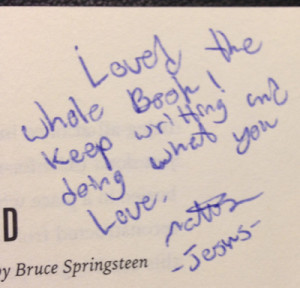 Loved the
whole Book!
Keep writing and
doing what you
Love.
-Jesus-
D
by Bruce Springsteen